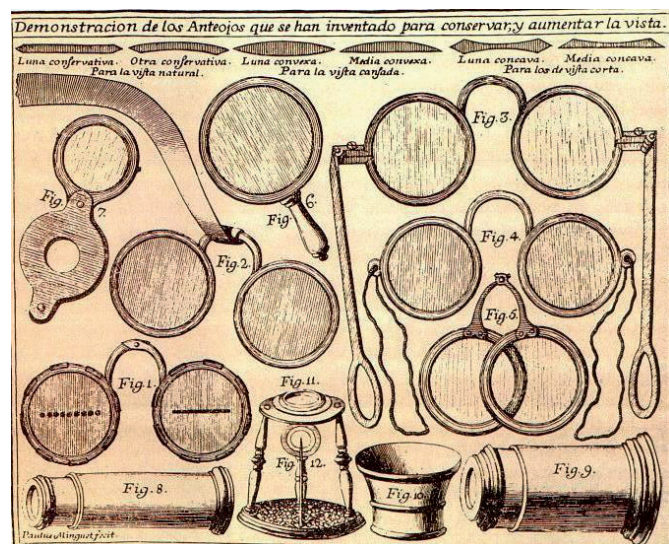 Demonstracion de los Anteojos que se han inventado para conservar, y aumentar la vista.
Luna conservativa. Otra conservativa. Luna convexa. Media convexa. Luna concava. Media concava.
Para la vista natural. Para la vista cansada. Para los de vista corta.
Fig. 3.
Fig. 7.
Fig. 6.
Fig. 2.
Fig. 4.
Fig. 5.
Fig. 1.
Fig. 11.
Fig. 12.
Fig. 8.
Fig. 10.
Fig. 9.
Paulus Minguet fecit.